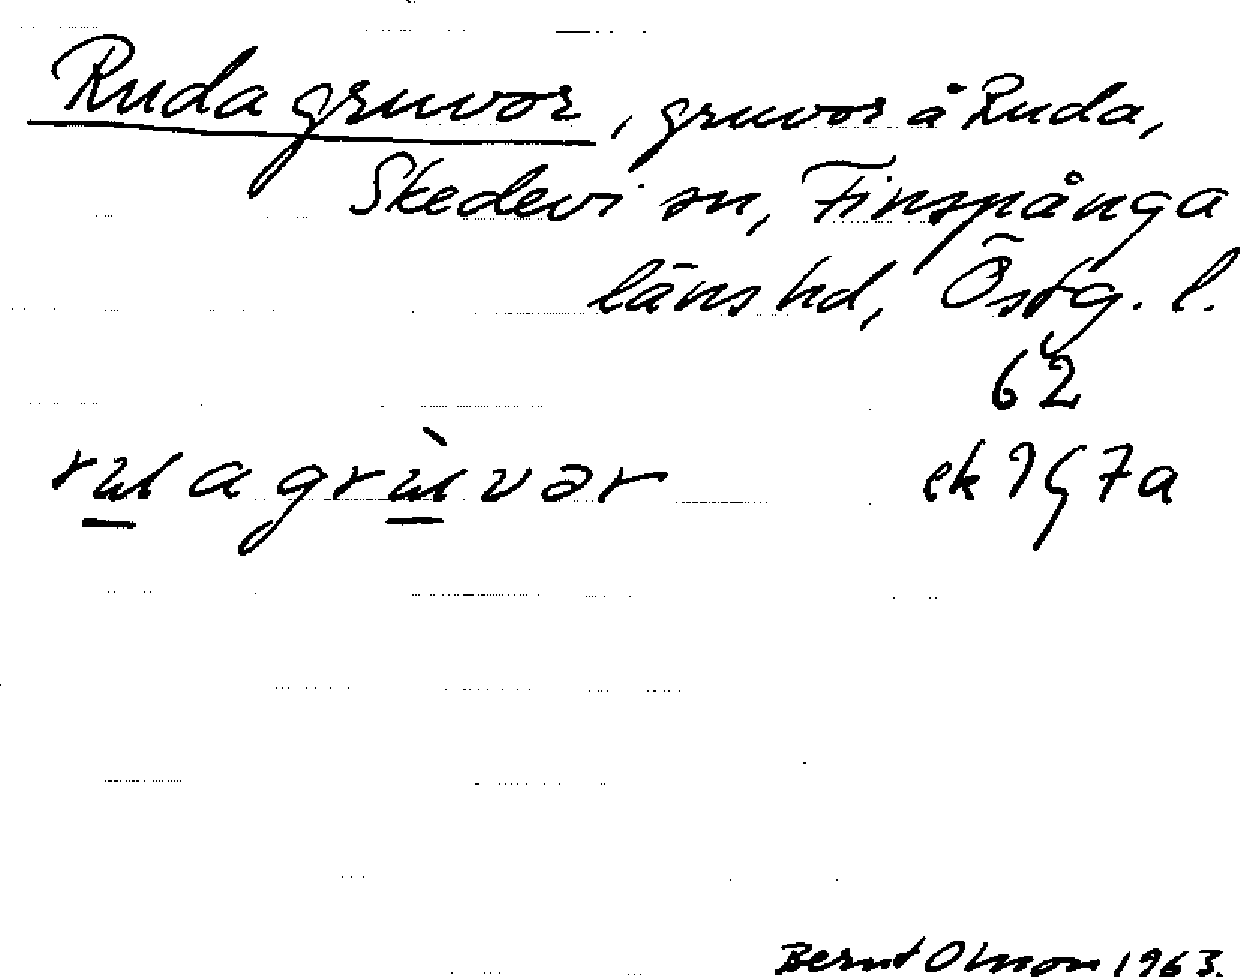 Ruda gruvor, gruvor å Ruda,
Skedevi sn, Finspånga
läns hd, Östg. l.
62
ek 957a
Bernt Olsson 1963.